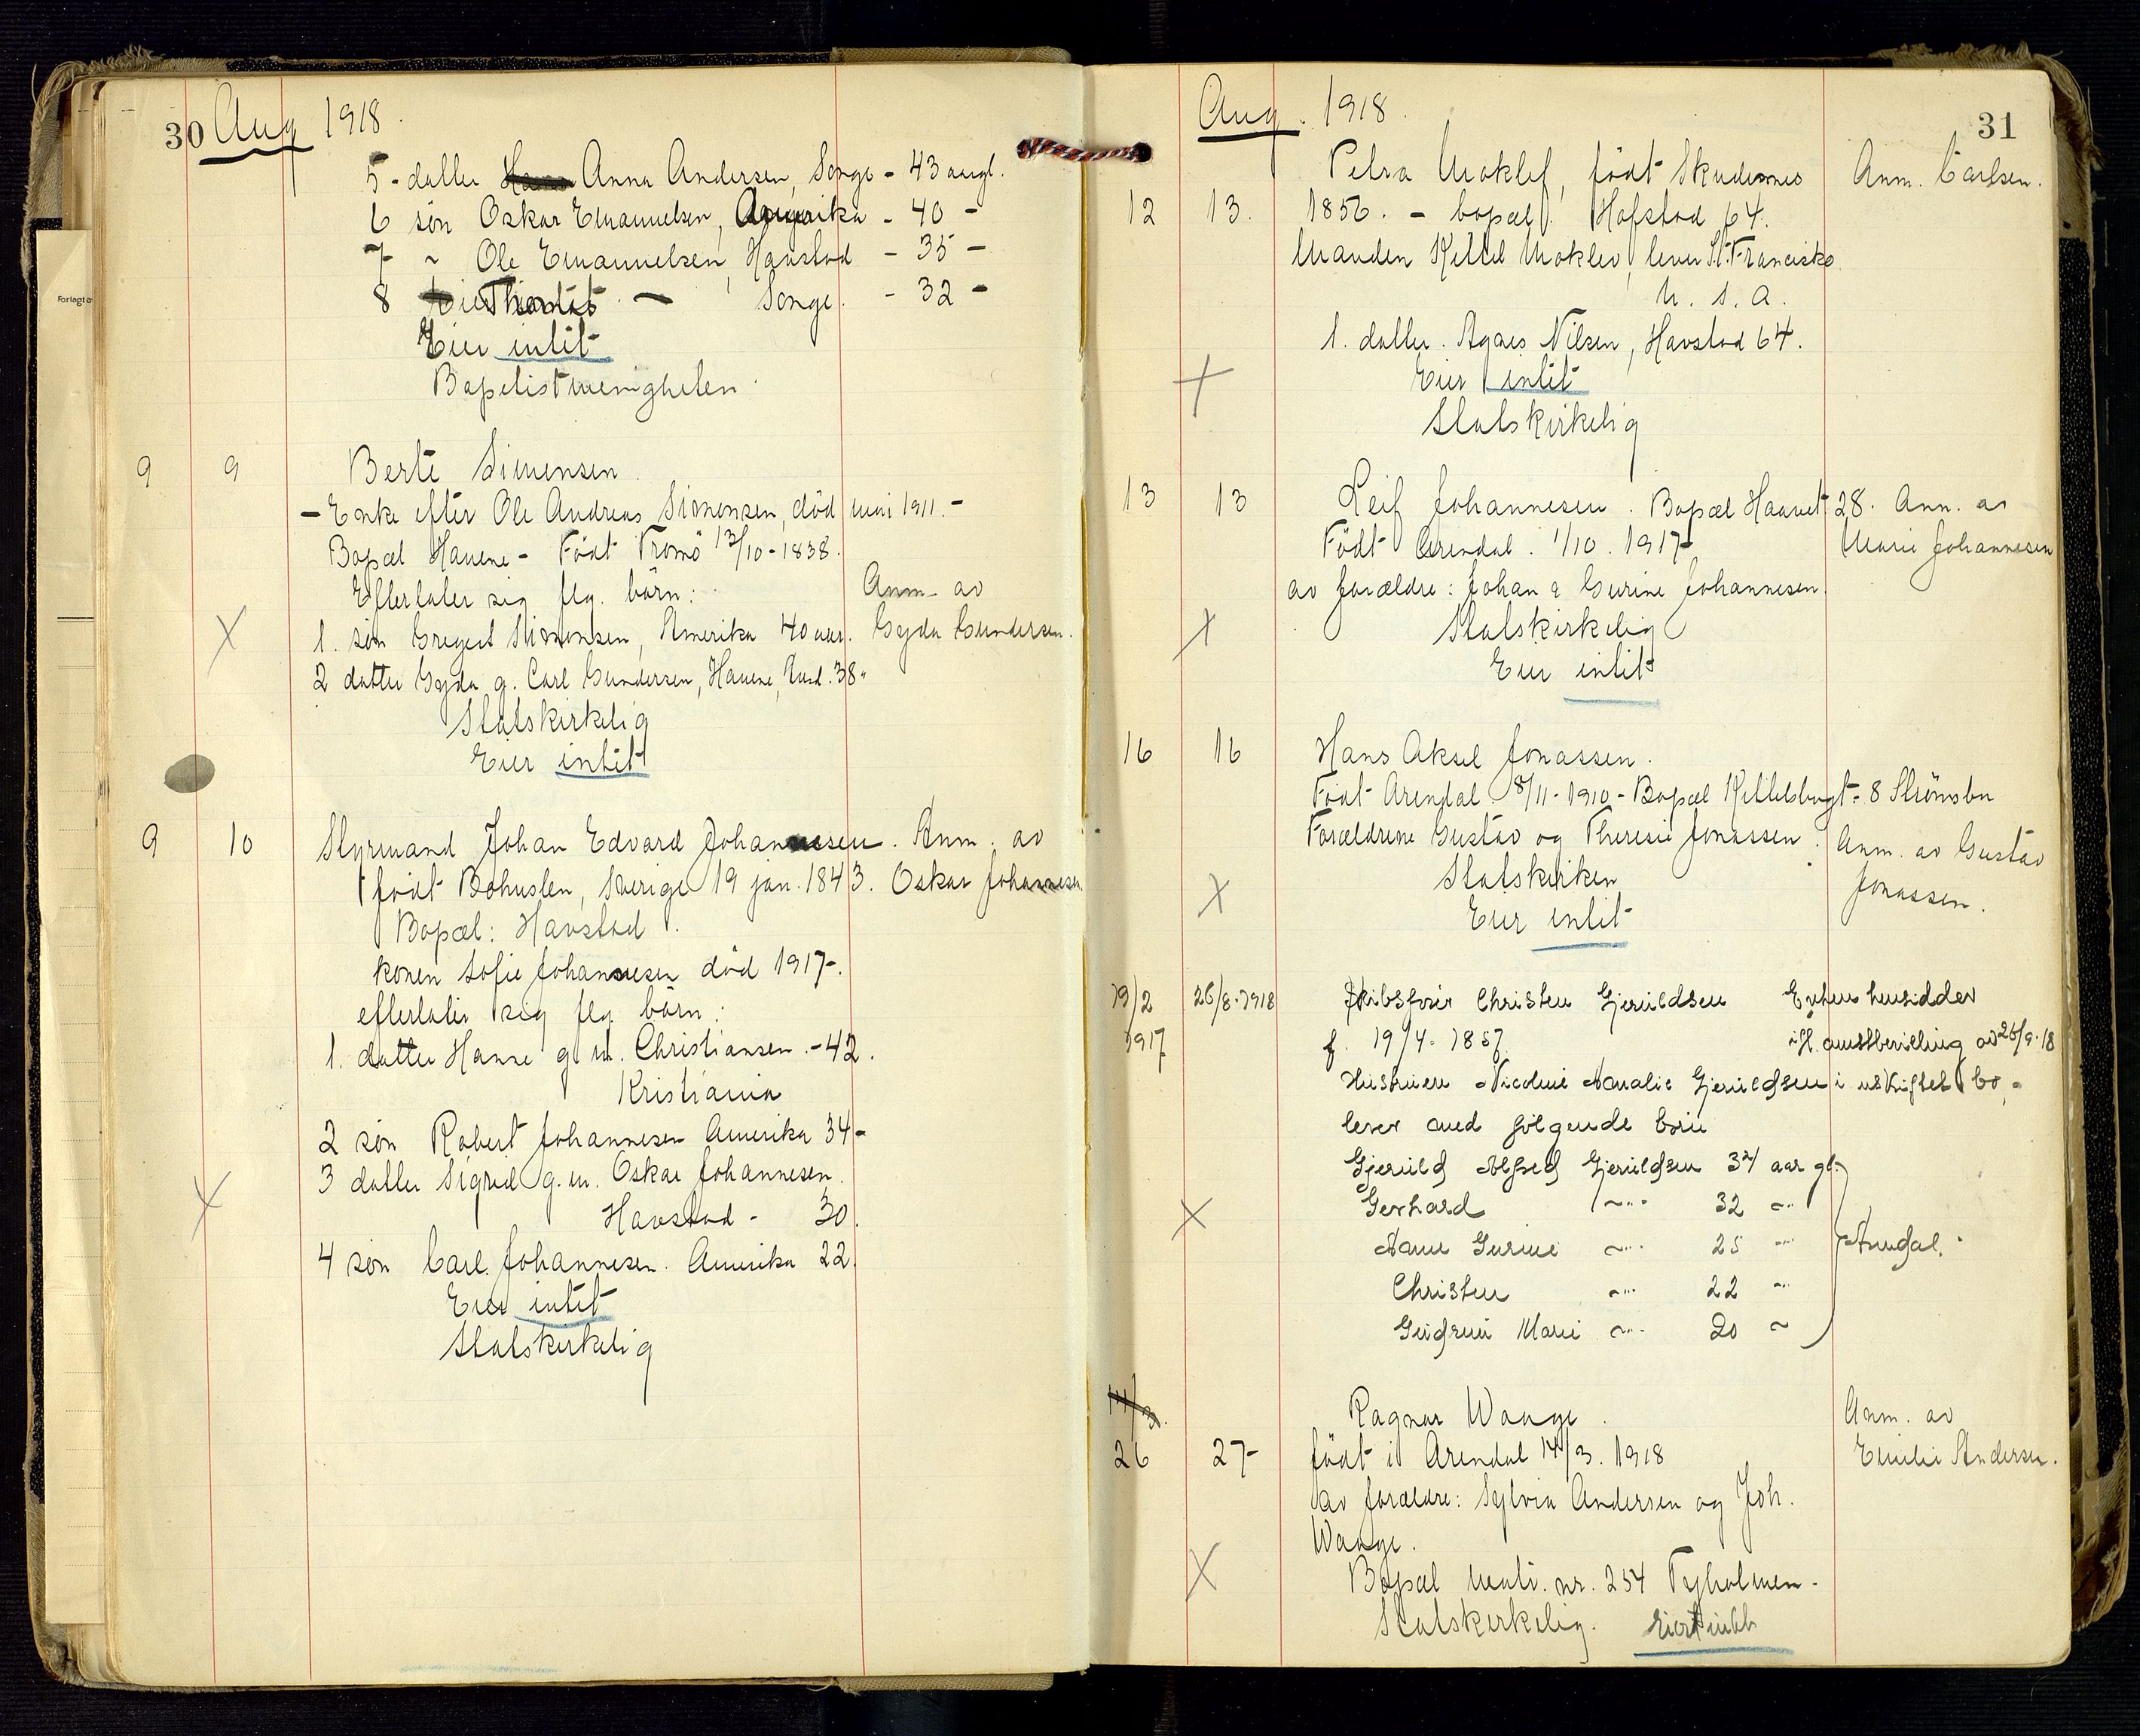 30 Aug 1918.
5 - datter Anna Andersen, Songe - 43 aargl.
6 søn Oskar Emanuelsen, Amerika - 40 -
7 ~ Ole Emanuelsen, Havstad - 35 -
8 Thomas - Songe. - 32 -
Eier intit
Baptistmenigheten
9 9 Berte Simensen.
- Enke efter Ole Andreas Simonsen, död mai 1911. -
Bopæl Havene - Födt Tromö 13/10 - 1838.
Efterlater sig flg. börn: Anm. av
1. søn Gregert Simonsen, Amerika 40 aar. Gyda Gundersen.
2 datter Gyda g. Carl Gundersen, Havene, 38"
Statskirkelig
Eier intit
9 10 Styrmand Johan Edvard Johannesen. Anm. av
født Bohuslen, Sverige 19 jan. 1843. Oskar Johannesen
Bopæl: Havstad.
konen Sofie Johannesen död 1917.
efterlater sig flg börn:
1. datter Hanse g. m. Christiansen. - 42.
Kristiania
2 søn Robert Johannesen Amerika 34 -
3 datter Sigrid g. m. Oskar Johannesen.
Havstad - 30.
4 søn Carl Johannesen. Amerika 22.
Eier intit
Statskirkelig
Aug. 1918. 31
Petra Moklef, födt Skudesnes Anm. Carlsen.
12 13. 1856. - bopæl. Hofstad 64.
Manden Kittel Moklev, lever St. Francisko
U. S. A.
1. datter. Agnes Nilsen, Havstad 64.
Eier intit
Statskirkelig
13 13 Leif Johannesen. Bopæl 28. Anm. av
Födt Arendal. 1/10. 1917 Marie Johannesen
av forældre: Johan & Gurine Johannesen.
Statskirkelig
Eier intit
16 16 Hans Aksel Jonassen.
Födt Arendal. 8/11 - 1910 - Bopæl Kittelsbugt - 8 Strömsbu
Forældrene Gustav og Theresie Jonassen. Anm. av Gustav
Statskirken Jonassen.
Eier intit
19/2 26/8.1918 Skibsfører Christen Gjeruldsen Enken hensidder
1917 f. 19/4. 1857 ifl. amtsbevilling av 26/9. 18
Hustruen Nicoline Amalie Gjeruldsen i uskiftet bo.
lever med følgende børn
Gjeruld Alfred Gjeruldsen 34 aar gl.
Gerhard ~ 32 ~
Gurine ~ 25 ~ Arendal.
Christen ~ 22 ~
Gudrun Marie ~ 20 ~
14/3. Ragnar Waage. Anm. av
26 27 födt i Arendal 14/3. 1918 Emilie Andersen.
av forældre: Sylvia Andersen og Joh.
Waage.
Bopæl matr. nr. 254 Tyholmen.
Statskirkelig. Eier intet